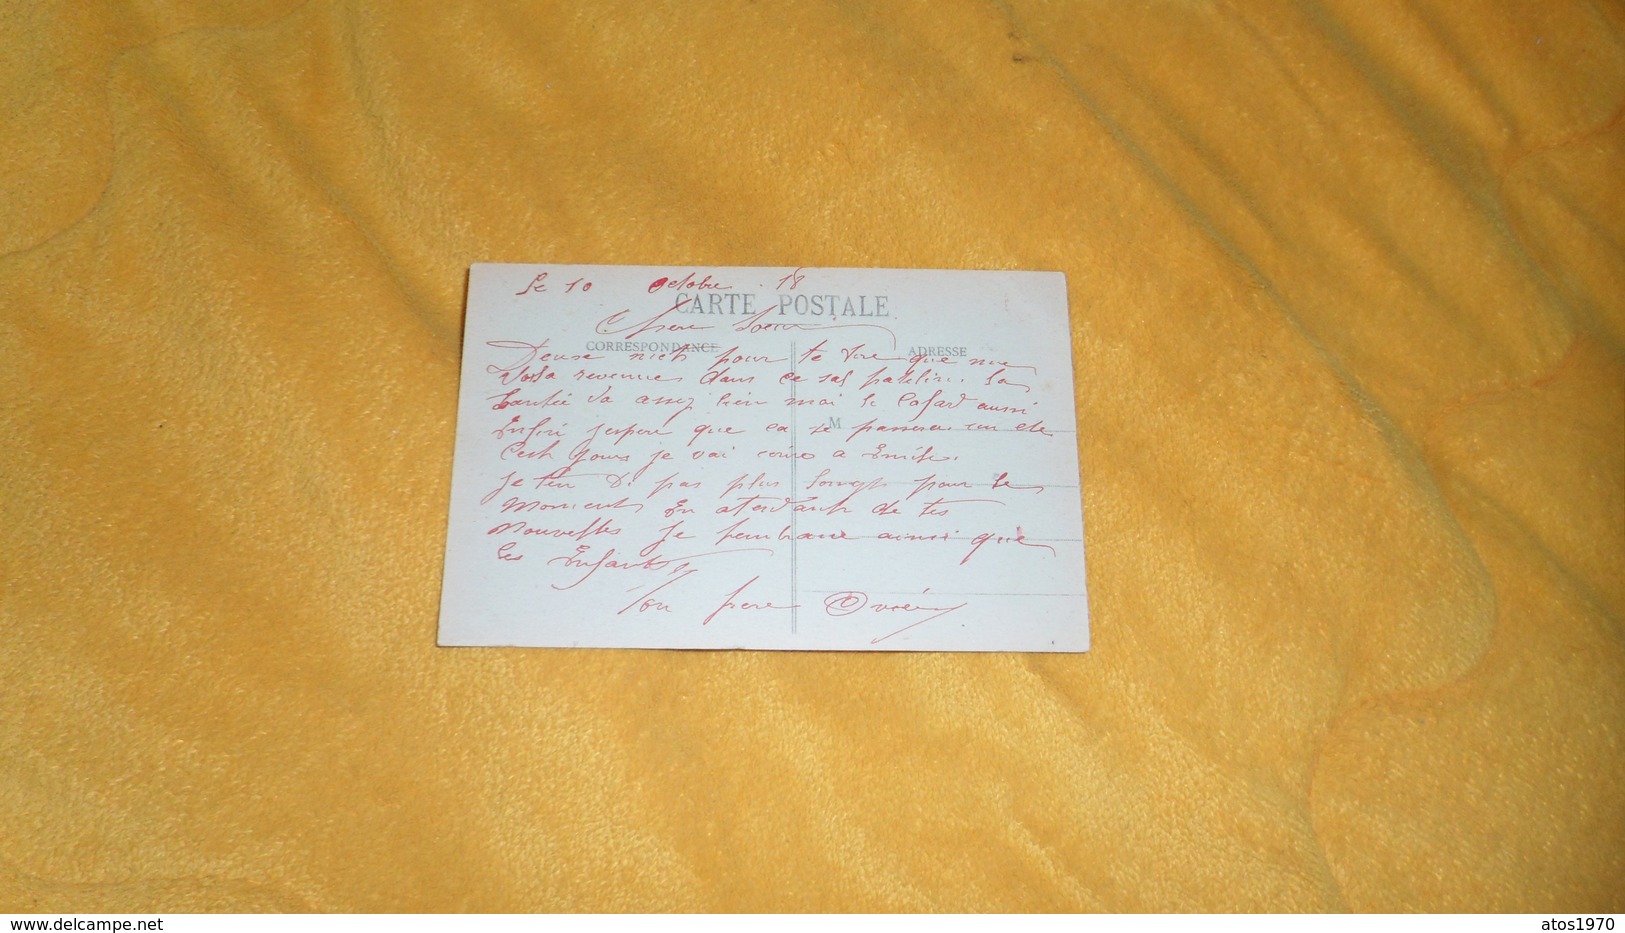 Le 10 Octobre 18
CARTE POSTALE
Chere Soeur
CORRESPONDANCE ADRESSE
Deuse pour te dire que me
Voila revenue dans ce sal patelin. la
Santée va assez bien mai le Cafard aussi
M
Enfin jespere que ca se passera un ete
Cest Jours je vai a Emile.
Je ten Di pas plus long pour le
moment En atendant de tes
Nouvelles Je tembrane ainsi que
les Enfants
Ton frere
www.delcampe.net atos1970